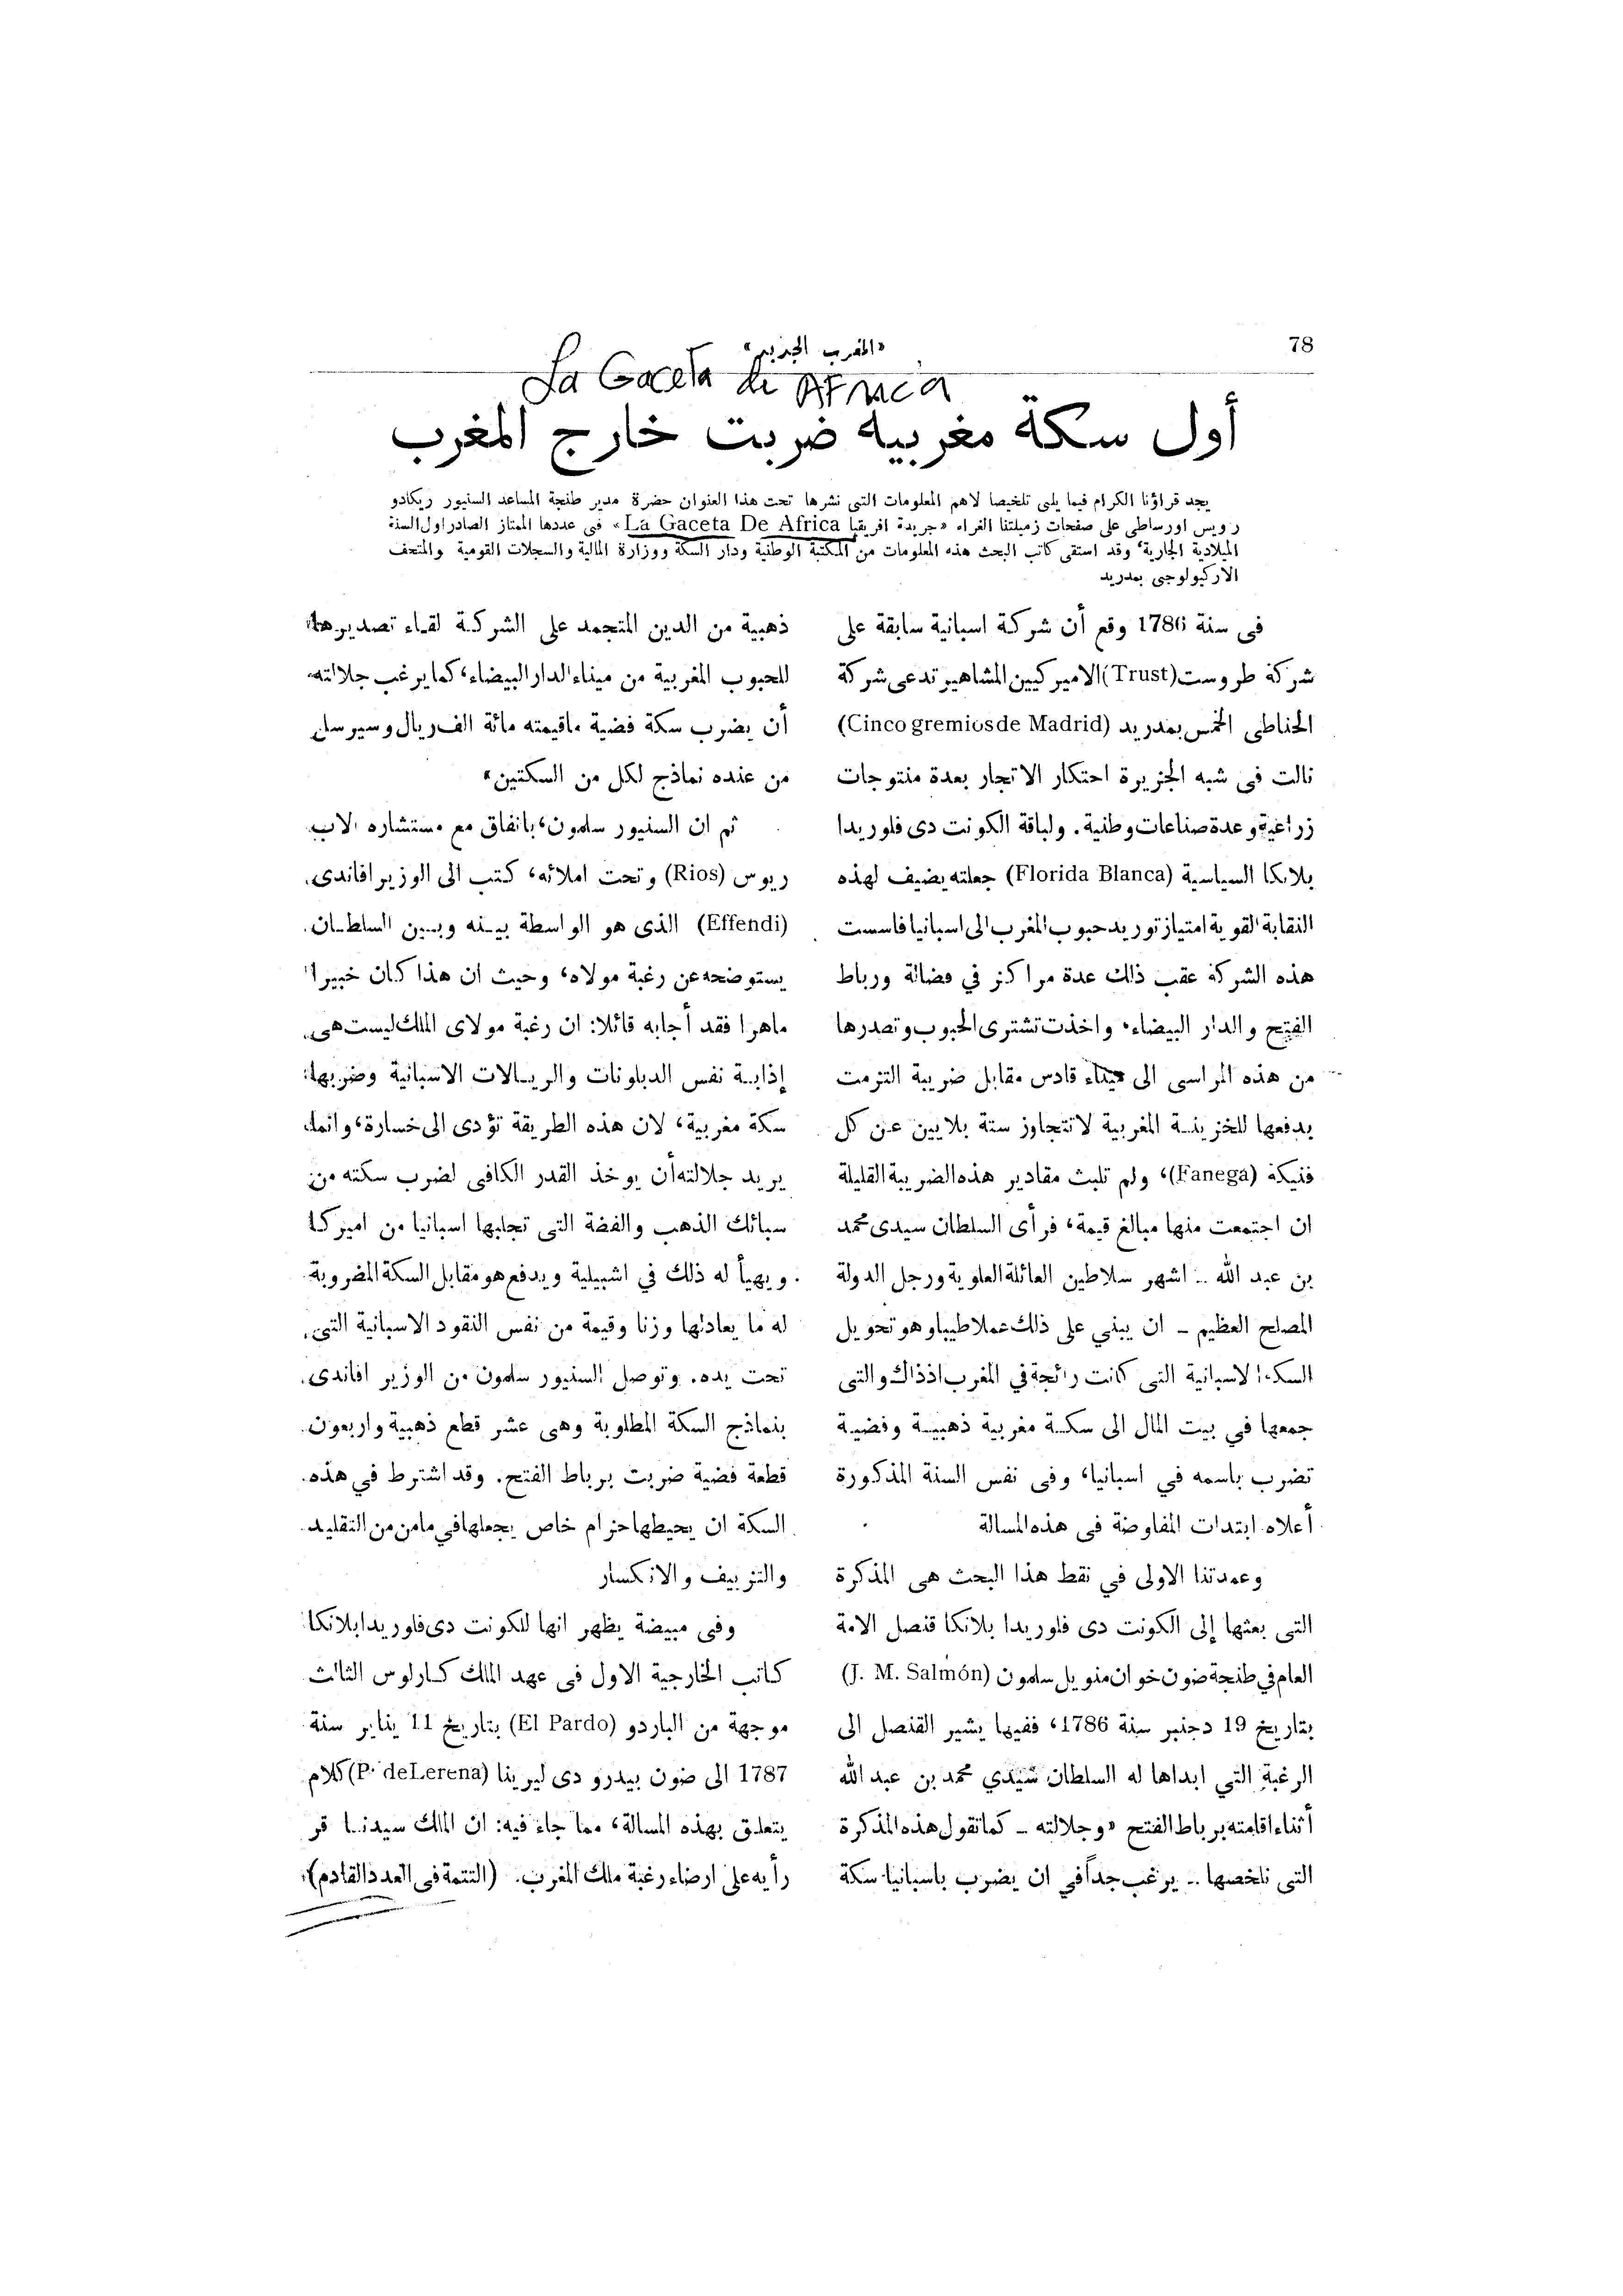 78
«المغرب الجديد»
La Gaceta de AFRICA
أول سكة مغربية ضربت خارج المغرب
يجد قراؤنا الكرام فيما يلى تلخيصا لاهم المعلومات التى نشرها تحت هذا العنوان حضرة مدير طنجة المساعد السنيور ريكادو
رويس اورساطى على صفحات زميلتنا الغراء «جريدة افريقيا La Gaceta De Africa» فى عددها الممتاز الصادر اول السنة
الميلادية الجارية، وقد استقى كاتب البحث هذه المعلومات من المكتبة الوطنية ودار السكة ووزارة المالية والسجلات القومية والمتحف
الاركيولوجى بمدريد
فى سنة 1786 وقع أن شركة اسبانية سابقة على
شركة طروست (Trust) الاميركيين المشاهير تدعى شركة
الحناطى الخمس بمدريد (Cinco gremios de Madrid)
نالت فى شبه الجزيرة احتكار الاتجار بعدة منتوجات
زراعية وعدة صناعات وطنية. ولباقة الكونت دى فلوريدا
بلانكا السياسية (Florida Blanca) جعلته يضيف لهذه
النقابة القوية امتياز توريد حبوب المغرب الى اسبانيا فاسست
هذه الشركة عقب ذلك عدة مراكز في فضالة ورباط
الفتح والدار البيضاء، واخذت تشترى الحبوب وتصدرها
من هذه المراسى الى ميناء قادس مقابل ضريبة التزمت
بدفعها للخزينة المغربية لا تتجاوز ستة بلايين عن كل
فنيكة (Fanega)، ولم تلبث مقادير هذه الضريبة القليلة
ان اجتمعت منها مبالغ قيمة، فرأى السلطان سيدى محمد
بن عبد الله ـ اشهر سلاطين العائلة العلوية ورجل الدولة
المصلح العظيم ـ ان يبني على ذلك عملا طيبا وهو تحويل
السكة الاسبانية التى كانت رائجة في المغرب اذذاك والتى
جمعها في بيت المال الى سكة مغربية ذهبية وفضية
تضرب باسمه في اسبانيا، وفى نفس السنة المذكورة
أعلاه ابتدات المفاوضة فى هذه المسالة
وعمدتنا الاولى في نقط هذا البحث هى المذكرة
التى بعثها إلى الكونت دى فلوريدا بلانكا قنصل الامة
العام في طنجة ضون خوان منويل سلمون (J. M. Salmón)
بتاريخ 19 دجنبر سنة 1786، ففيها يشير القنصل الى
الرغبة التي ابداها له السلطان سيدي محمد بن عبد الله
أثناء اقامته برباط الفتح «وجلالته ـ كما تقول هذه المذكرة
التى نلخصها ـ يرغب جداً في ان يضرب باسبانيا سكة
ذهبية من الدين المتجمد على الشركة لقاء تصديرها
للحبوب المغربية من ميناء الدار البيضاء، كما يرغب جلالته
أن يضرب سكة فضية ماقيمته مائة الف ريال وسيرسل
من عنده نماذج لكل من السكتين»
ثم ان السنيور سلمون، باتفاق مع مستشاره الاب
ريوس (Rios) وتحت املائه، كتب الى الوزير افاندى
(Effendi) الذى هو الواسطة بينه وبين السلطان
يستوضحه عن رغبة مولاه، وحيث ان هذا كان خبيرا
ماهرا فقد أجابه قائلا: ان رغبة مولاى الملك ليست هى
إذابة نفس الدبلونات والريالات الاسبانية وضربها
سكة مغربية، لان هذه الطريقة تؤدى الى خسارة، وانما
يريد جلالته أن يوخذ القدر الكافى لضرب سكته من
سبائك الذهب والفضة التى تجلبها اسبانيا من اميركا
ويهيأ له ذلك في اشبيلية ويدفع هو مقابل السكة المضروبة
له ما يعادلها وزنا وقيمة من نفس النقود الاسبانية التى
تحت يده. وتوصل السنيور سلمون من الوزير افاندى
بنماذج السكة المطلوبة وهى عشر قطع ذهبية واربعون
قطعة فضية ضربت برباط الفتح. وقد اشترط في هذه
السكة ان يحيطها حزام خاص يجعلها في مامن من التقليد
والتزييف والانكسار
وفى مبيضة يظهر انها للكونت دى فلوريدا بلانكا
كاتب الخارجية الاول فى عهد الملك كارلوس الثالث
موجهة من الباردو (El Pardo) بتاريخ 11 يناير سنة
1787 الى ضون بيدرو دى ليرينا (P. de Lerena) كلام
يتعلق بهذه المسالة، مما جاء فيه: ان الملك سيدنا قر
رأيه على ارضاء رغبة ملك المغرب. (التتمة فى العدد القادم)